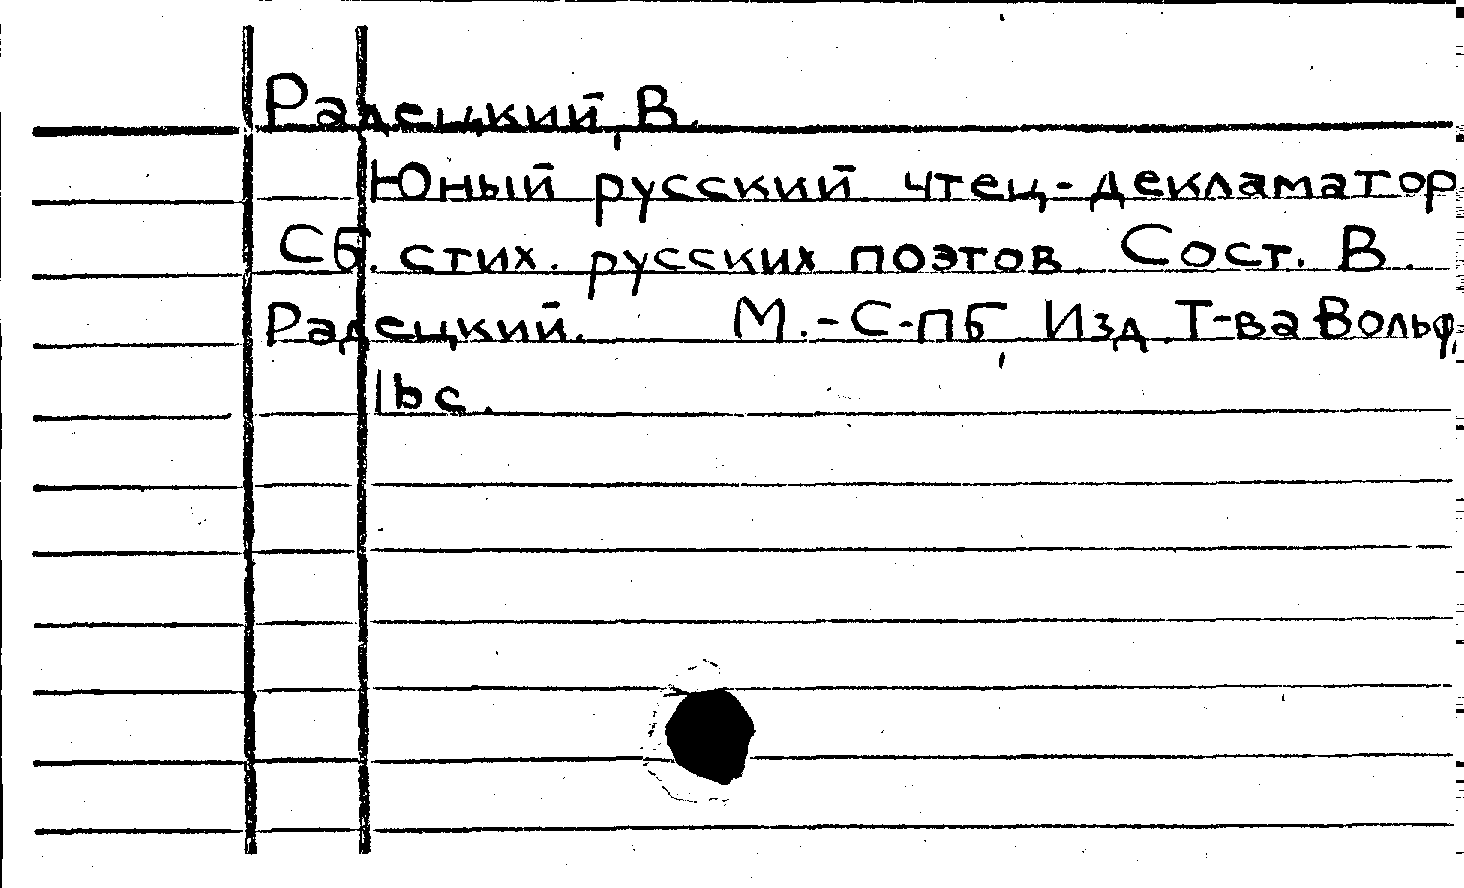 Радецкий, В.
Юный русский чтец-декламатор
Сб. стих. русских поэтов. Сост. В.
Радецкий. М.-С-ПБ, Изд. Т-ва Вольф,
16 с.